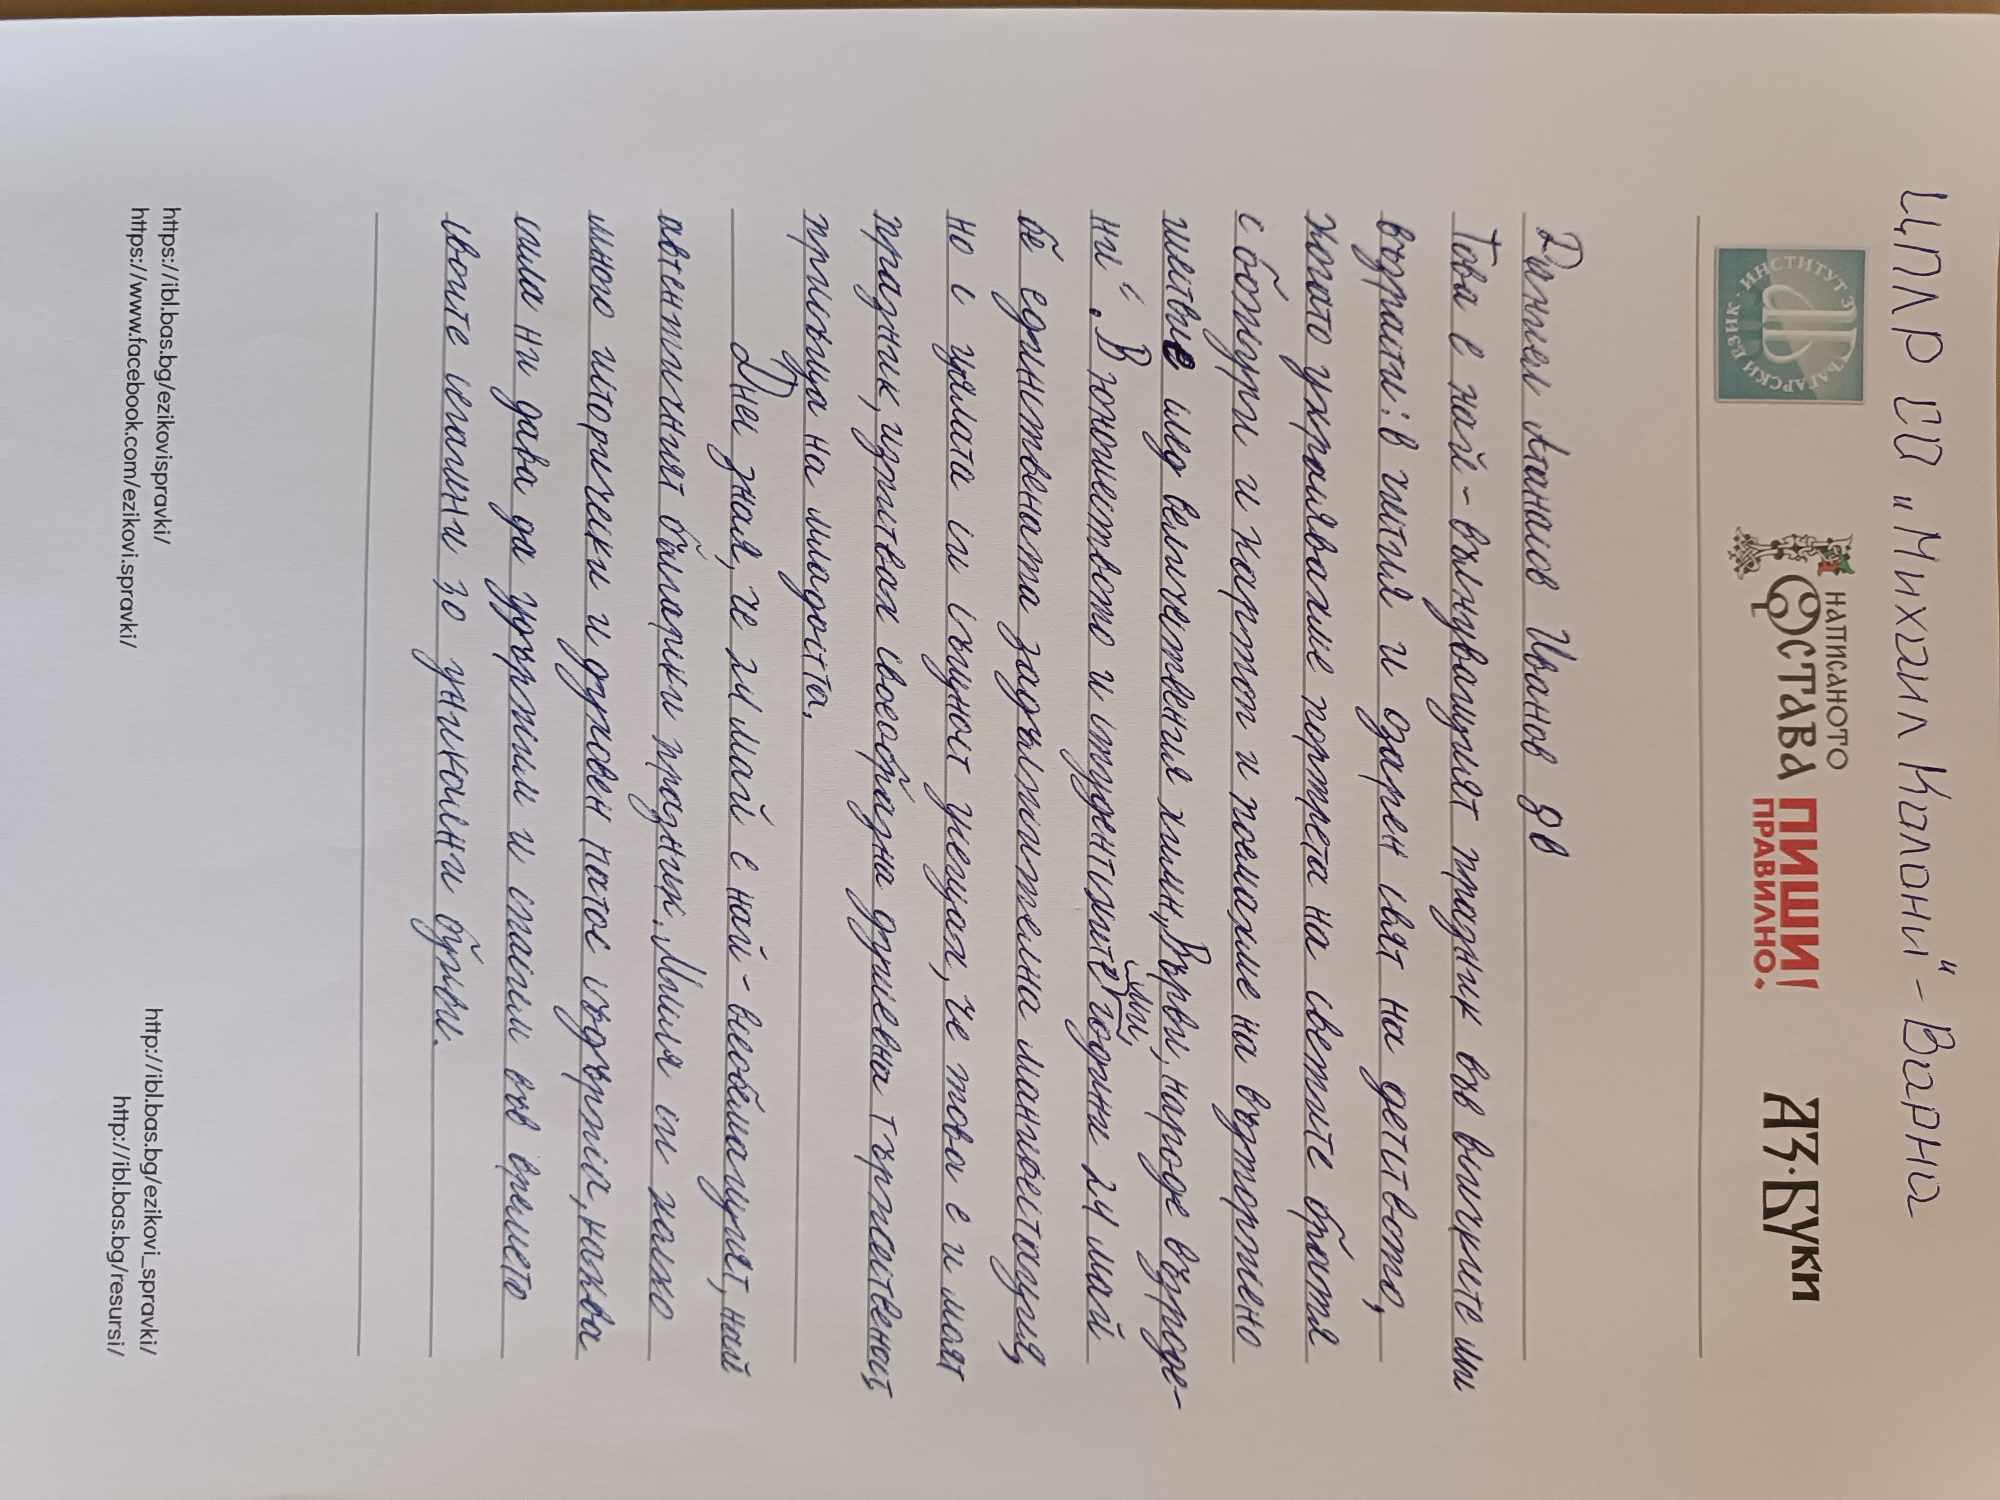 ЦПЛР СО „Михаил Колони" - Варна
ИНСТИТУТ ЗА БЪЛГАРСКИ ЕЗИК
НАПИСАНОТО
ОСТАВА
ПИШИ
ПРАВИЛНО!
АЗ·БУКИ
Даниел Атанасов Иванов 8в
Това е най-вълнуващият празник във всичките ми
възрасти: в чистия и озарен свят на детството,
когато украсявахме портрета на светите братя
с божури и картон и поемахме на възторжено
шествие след величествения химн „Върви, народе възроде-
ни". В юношеството и студентските ми години 24 май
бе единствената задължителна манифестация,
но с цялата си същност усещах, че това е и моят
празник, изпитвах своеобразна душевна тържественост,
присъща на младостта.
Днес зная, че 24 май е най-всеобхващият, най
автентичният български празник. Мисля си какво
много исторически и духовен патос съдържа, каква
сила ни дава да удържим и спасим във времето
своите селания зо уникални букви.
https://ibl.bas.bg/ezikovispravki/
https://www.facebook.com/ezikovi.spravki/
http://ibl.bas.bg/ezikovi_spravki/
http://ibl.bas.bg/resursi/